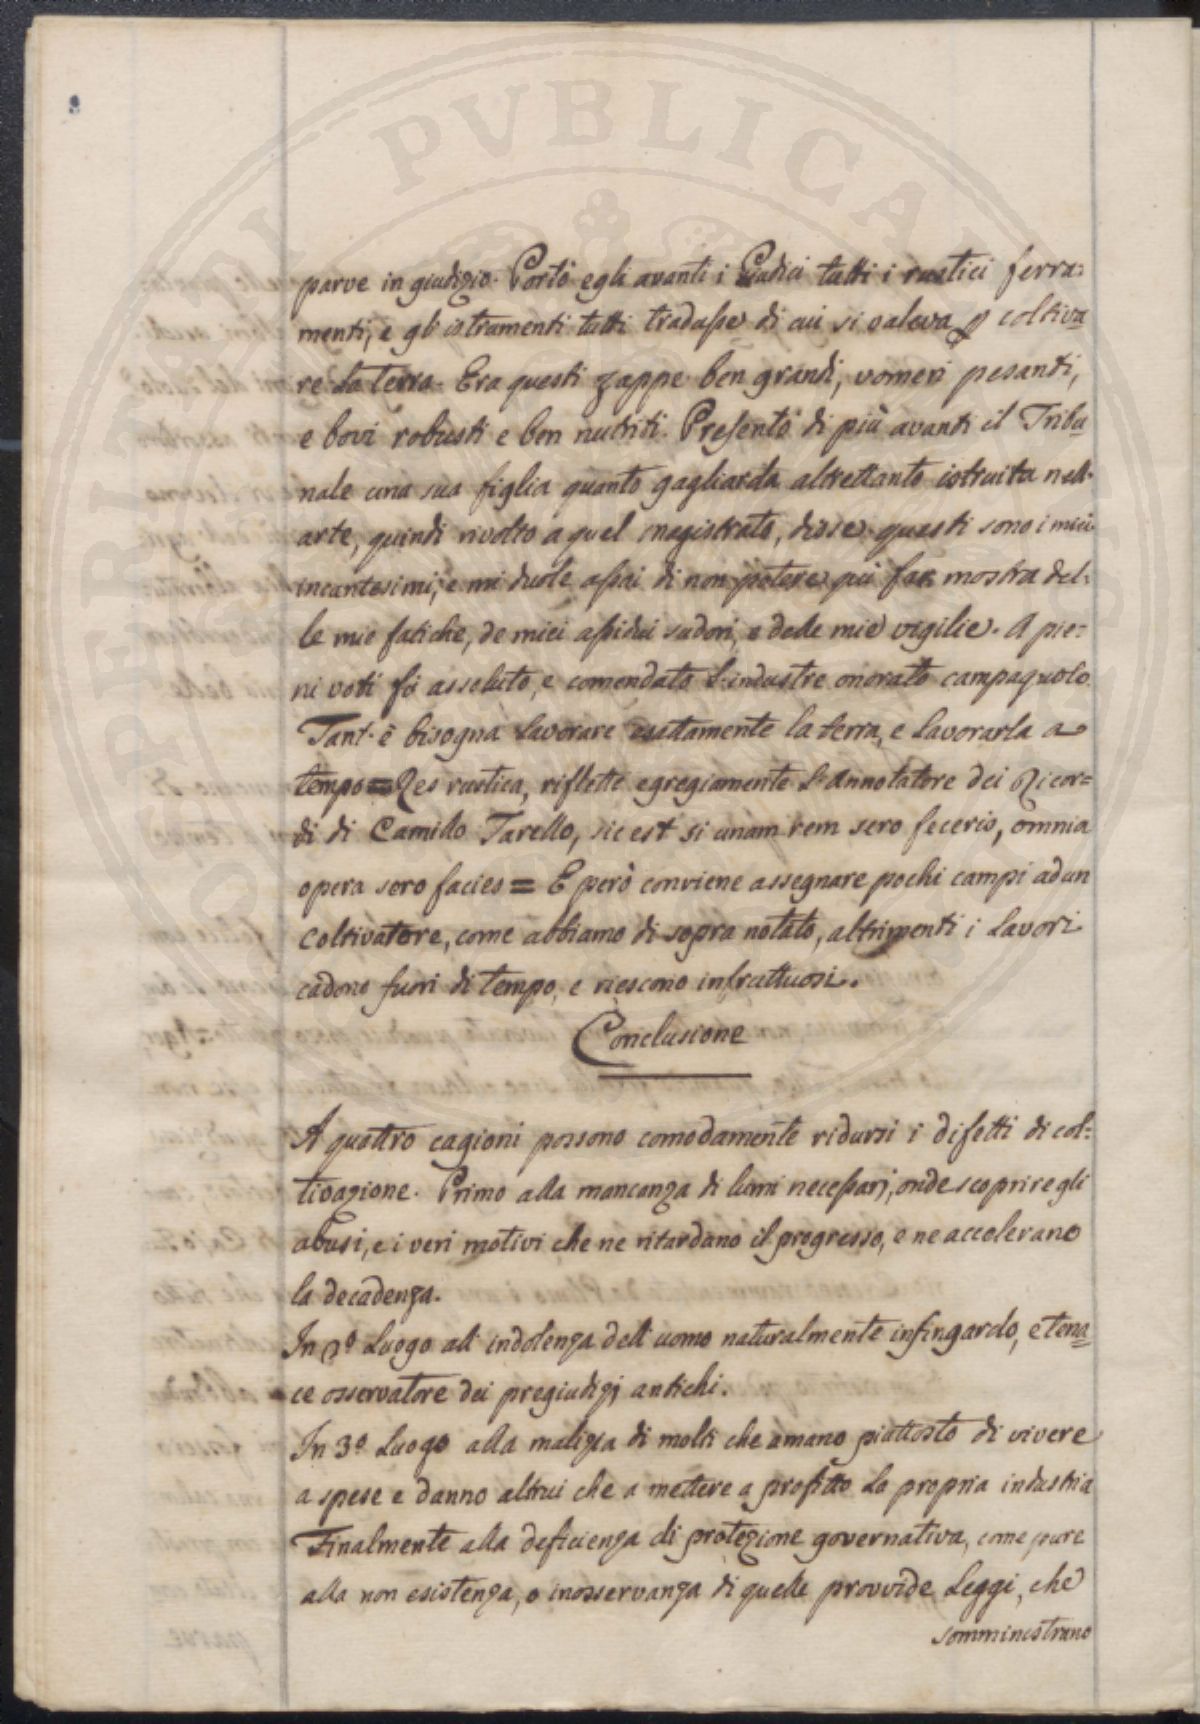 PROSPERITATI PVBLICAE AVGENDAE
parve in giudizio. Portò egli avanti i Giudici tutti i rustici ferra:
menti, e gl'istramenti tutti tradusse di cui si valeva p coltiva
re la terra. Era questi zappe ben grandi, vomeri pesanti,
e bovi robusti e ben nutriti. Presentò di più avanti il Tribu
nale una sua figlia quanto gagliarda altrettanto istruita nell'
arte, quindi rivolto a quel magistrato, disse: questi sono i miei
incantesimi, e mi duole assai di non potere più far mostra del:
le mie fatiche, de miei assidui sudori, e delle mie vigilie. A pie:
ni voti fù assoluto, e comendato l'industre onorato campagnolo
Tant'è bisogna lavorare esattamente la terra, e lavorarla a
tempo = Res rustica, riflette egregiamente l'Annotatore dei Ricor=
di di Camillo Tarello, sic est si unam rem sero feceris, omnia
opera sero facies = E però conviene assegnare pochi campi ad un
coltivatore, come abbiamo di sopra notato, altrimenti i lavori
cadono fuori di tempo, e riescono infruttuosi.
Conclusione
A quattro cagioni possono comodamente ridursi i difetti di col:
tivazione. Primo alla mancanza di lumi necessarj, onde scoprire gli
abusi, e i veri motivi che ne ritardano il progresso, e ne accelerano
la decadenza.
In 2º luogo all'indolenza dell'uomo naturalmente infingardo, e tena
ce osservatore dei pregiudizj antichi.
In 3º luogo alla malizia di molti che amano piuttosto di vivere
a spese e danno altrui che a mettere a profitto la propria industria
Finalmente alla deficienza di protezione governativa, come pure
alla non esistenza, o inosservanza di quelle provvide Leggi, che
somministrano